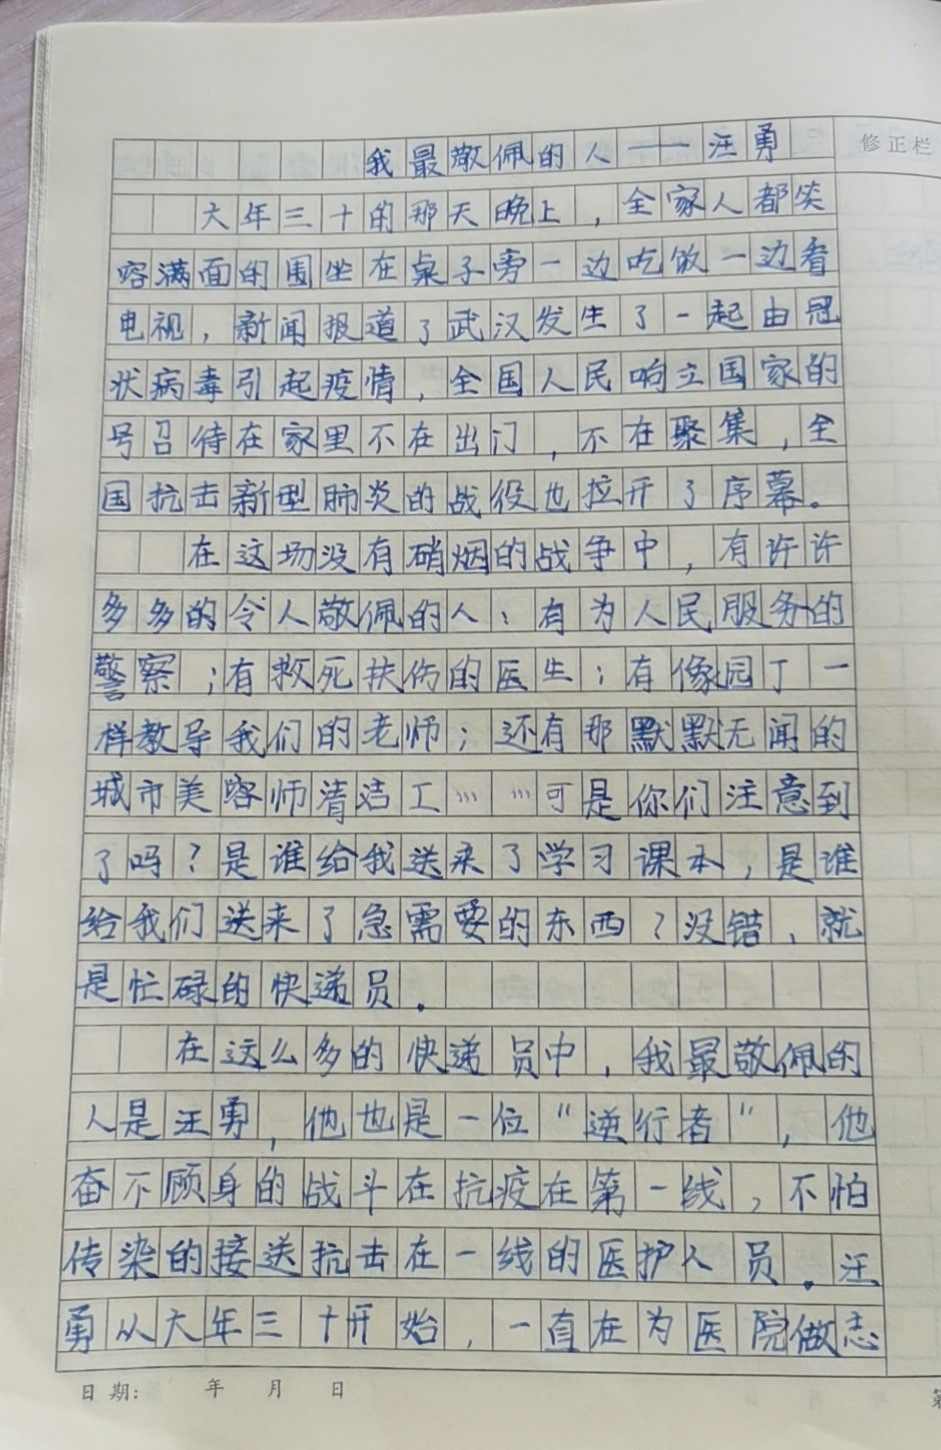 我最敬佩的人——汪勇
修正栏
大年三十的那天晚上，全家人都笑
容满面的围坐在桌子旁一边吃饭一边看
电视，新闻报道了武汉发生了一起由冠
状病毒引起疫情，全国人民响立国家的
号召待在家里不在出门，不在聚集，全
国抗击新型肺炎的战役也拉开了序幕。
在这场没有硝烟的战争中，有许许
多多的令人敬佩的人：有为人民服务的
警察；有救死扶伤的医生；有像园丁一
样教导我们的老师；还有那默默无闻的
城市美容师清洁工……可是你们注意到
了吗？是谁给我送来了学习课本，是谁
给我们送来了急需要的东西？没错，就
是忙碌的快递员。
在这么多的快递员中，我最敬佩的
人是汪勇，他也是一位“逆行者”，他
奋不顾身的战斗在抗疫在第一线，不怕
传染的接送抗击在一线的医护人员。汪
勇从大年三十开始，一直在为医院做志
日期： 年 月 日